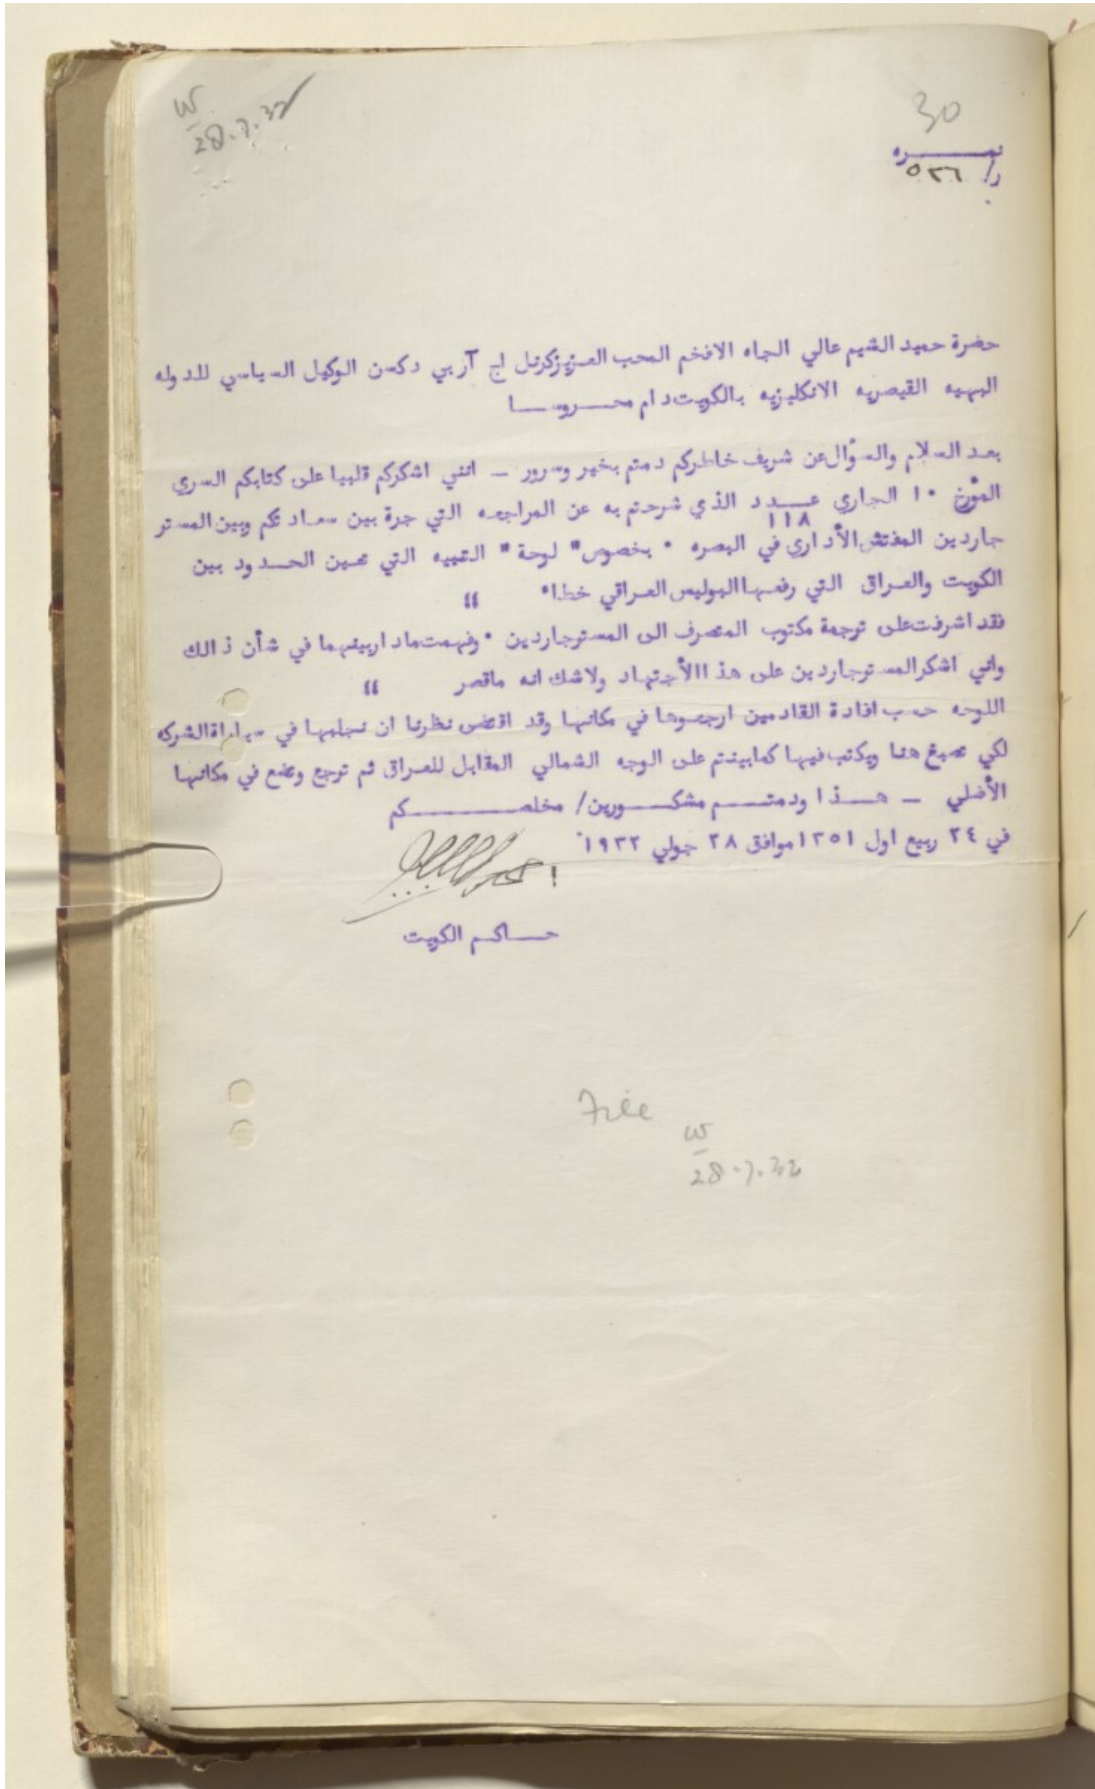 W
28.7.32
30
نمـــره
ر/ ٥٣٦
حضرة حميد الشيم عالي الجاه الافخم المحب العزيزكرنل اج آر بي دكسن الوكيل السياسي للدوله
البهيه القيصريه الانكليزيه بالكويت دام محـــروســـا
بعد السلام والسؤال عن شريف خاطركم دمتم بخير وسرور ــ انني اشكركم قلبيا على كتابكم السري
المؤرخ ١٠ الجاري عـــدد ١١٨ الذي شرحتم به عن المراجعه التي جرة بين سعادتكم وبين المستر
جاردين المفتش الأداري في البصره ٠ بخصوص" لوحة " التنبيه التي تعين الحـدود بين
الكويت والعراق التي رفعها البوليس العراقي خطاء "
فقد اشرفت على ترجمة مكتوب المتصرف الى المسترجاردين ٠ وفهمت ماداربينهما في شأن ذالك
واني اشكرالمسترجاردين على هذاالأجتهاد ولاشك انه ماقصر "
اللوحه حسب افادة القادمين ارجعوها في مكانها وقد اقتضى نظرنا ان نجلبها في سياراةالشركه
لكي تصبغ هنا ويكتب فيها كمابينتم على الوجه الشمالي المقابل للعراق ثم ترجع وتضع في مكانها
الأصلي ــ هـــذا ودمتـــم مشكـــورين/ مخلصـــكم
في ٢٤ ربيع اول ١٣٥١ موافق ٢٨ جولي ١٩٣٢
حـــاكـم الكويت
File
W
28.7.32